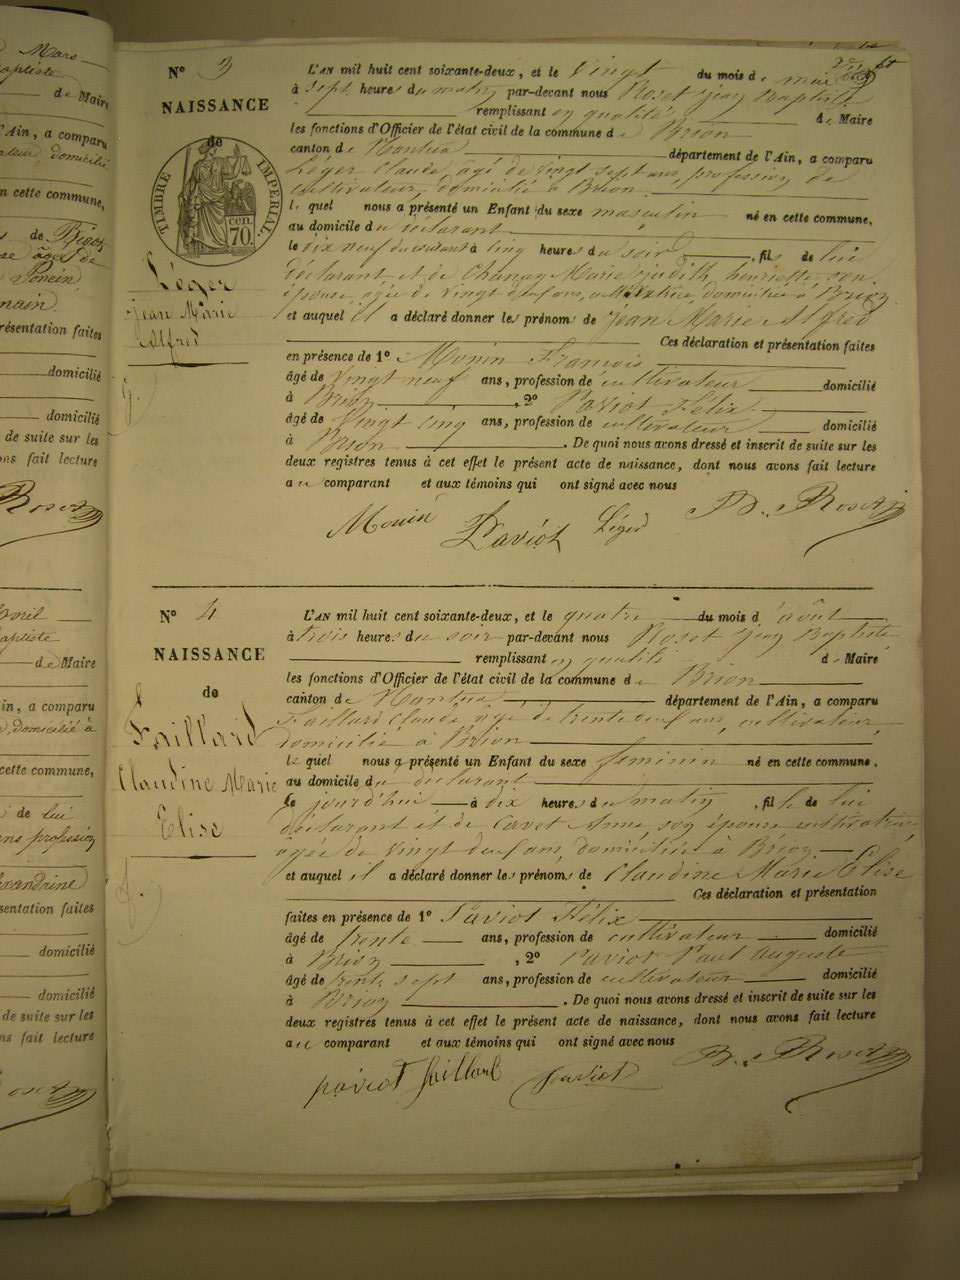 Mars
aptiste
de Maire
l'Ain, a comparu
domicilié
n cette commune,
de
Poncin
résentation faites
domicilié
domicilié
de suite sur les
ns fait lecture
Rosset
avril
aptiste
de Maire
in, a comparu
domicilié à
cette commune,
de lui
ans profession
exandrine
sentation faites
domicilié
domicilié
de suite sur les
ns fait lecture
N° 3
NAISSANCE
de
TIMBRE IMPERIAL
70. cen.
Léger
Jean Marie
Alfred
L'AN mil huit cent soixante-deux, et le Vingt du mois de mai
à sept heures du matin par-devant nous Roset Jean Baptiste
remplissant en qualité de Maire
les fonctions d'Officier de l'état civil de la commune de Brion
canton de Nantua département de l'Ain, a comparu
Léger Claude, âgé de vingt sept ans, profession de
cultivateur, domicilié à Brion
le quel nous a présenté un Enfant du sexe masculin né en cette commune,
au domicile du déclarant
le dix neuf du courant à cinq heures du soir, fils de lui
déclarant et de Chanay Marie Judith, henriette, son
épouse, âgée de vingt deux ans, cultivatrice, domiciliée à Brion
et auquel il a déclaré donner les prénoms de Jean Marie Alfred
Ces déclaration et présentation faites
en présence de 1° Monin François
âgé de Vingt neuf ans, profession de cultivateur domicilié
à Brion, 2° Paviot Félix
âgé de Vingt cinq ans, profession de cultivateur domicilié
à Brion. De quoi nous avons dressé et inscrit de suite sur les
deux registres tenus à cet effet le présent acte de naissance, dont nous avons fait lecture
au comparant et aux témoins qui ont signé avec nous
Monin Paviot Léger B. Roset
N° 4
NAISSANCE
de
Faillard
Claudine Marie
Elise
L'AN mil huit cent soixante-deux, et le quatre du mois d'août
à trois heures du soir par-devant nous Roset Jean Baptiste
remplissant en qualité de Maire
les fonctions d'Officier de l'état civil de la commune de Brion
canton de Nantua département de l'Ain, a comparu
Faillard Claude, âgé de trente deux ans, cultivateur,
domicilié à Brion
le quel nous a présenté un Enfant du sexe féminin né en cette commune,
au domicile du déclarant
le jourd'hui à dix heures du matin, fille de lui
déclarant et de Cavet Anne, son épouse cultivatrice,
âgée de vingt deux ans, domiciliée à Brion
et auquel il a déclaré donner les prénoms de Claudine Marie Elise
Ces déclaration et présentation
faites en présence de 1° Paviot Félix
âgé de trente ans, profession de cultivateur domicilié
à Brion, 2° Paviot Paul Auguste
âgé de trente sept ans, profession de cultivateur domicilié
à Brion. De quoi nous avons dressé et inscrit de suite sur les
deux registres tenus à cet effet le présent acte de naissance, dont nous avons fait lecture
au comparant et aux témoins qui ont signé avec nous
paviot faillard paviot B. Roset